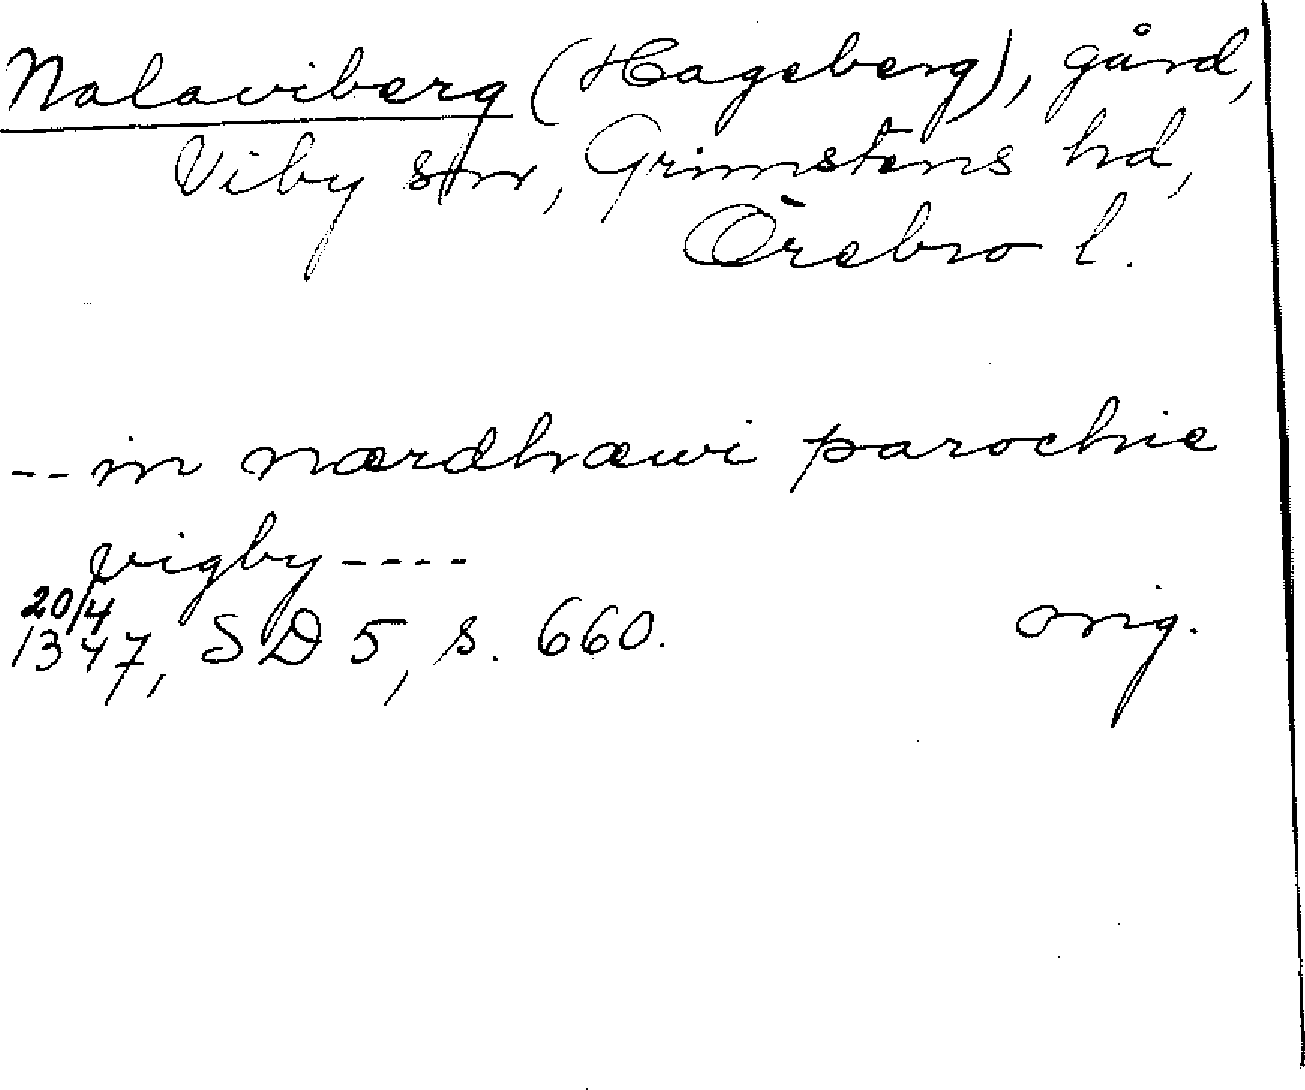 Nalaviberg (Hageberg), gård,
Viby sn, Grimstens hd,
Örebro l.
-- in nærdhræwi parochie
vigby ----
20/4
1347, SD 5, s. 660. orig.